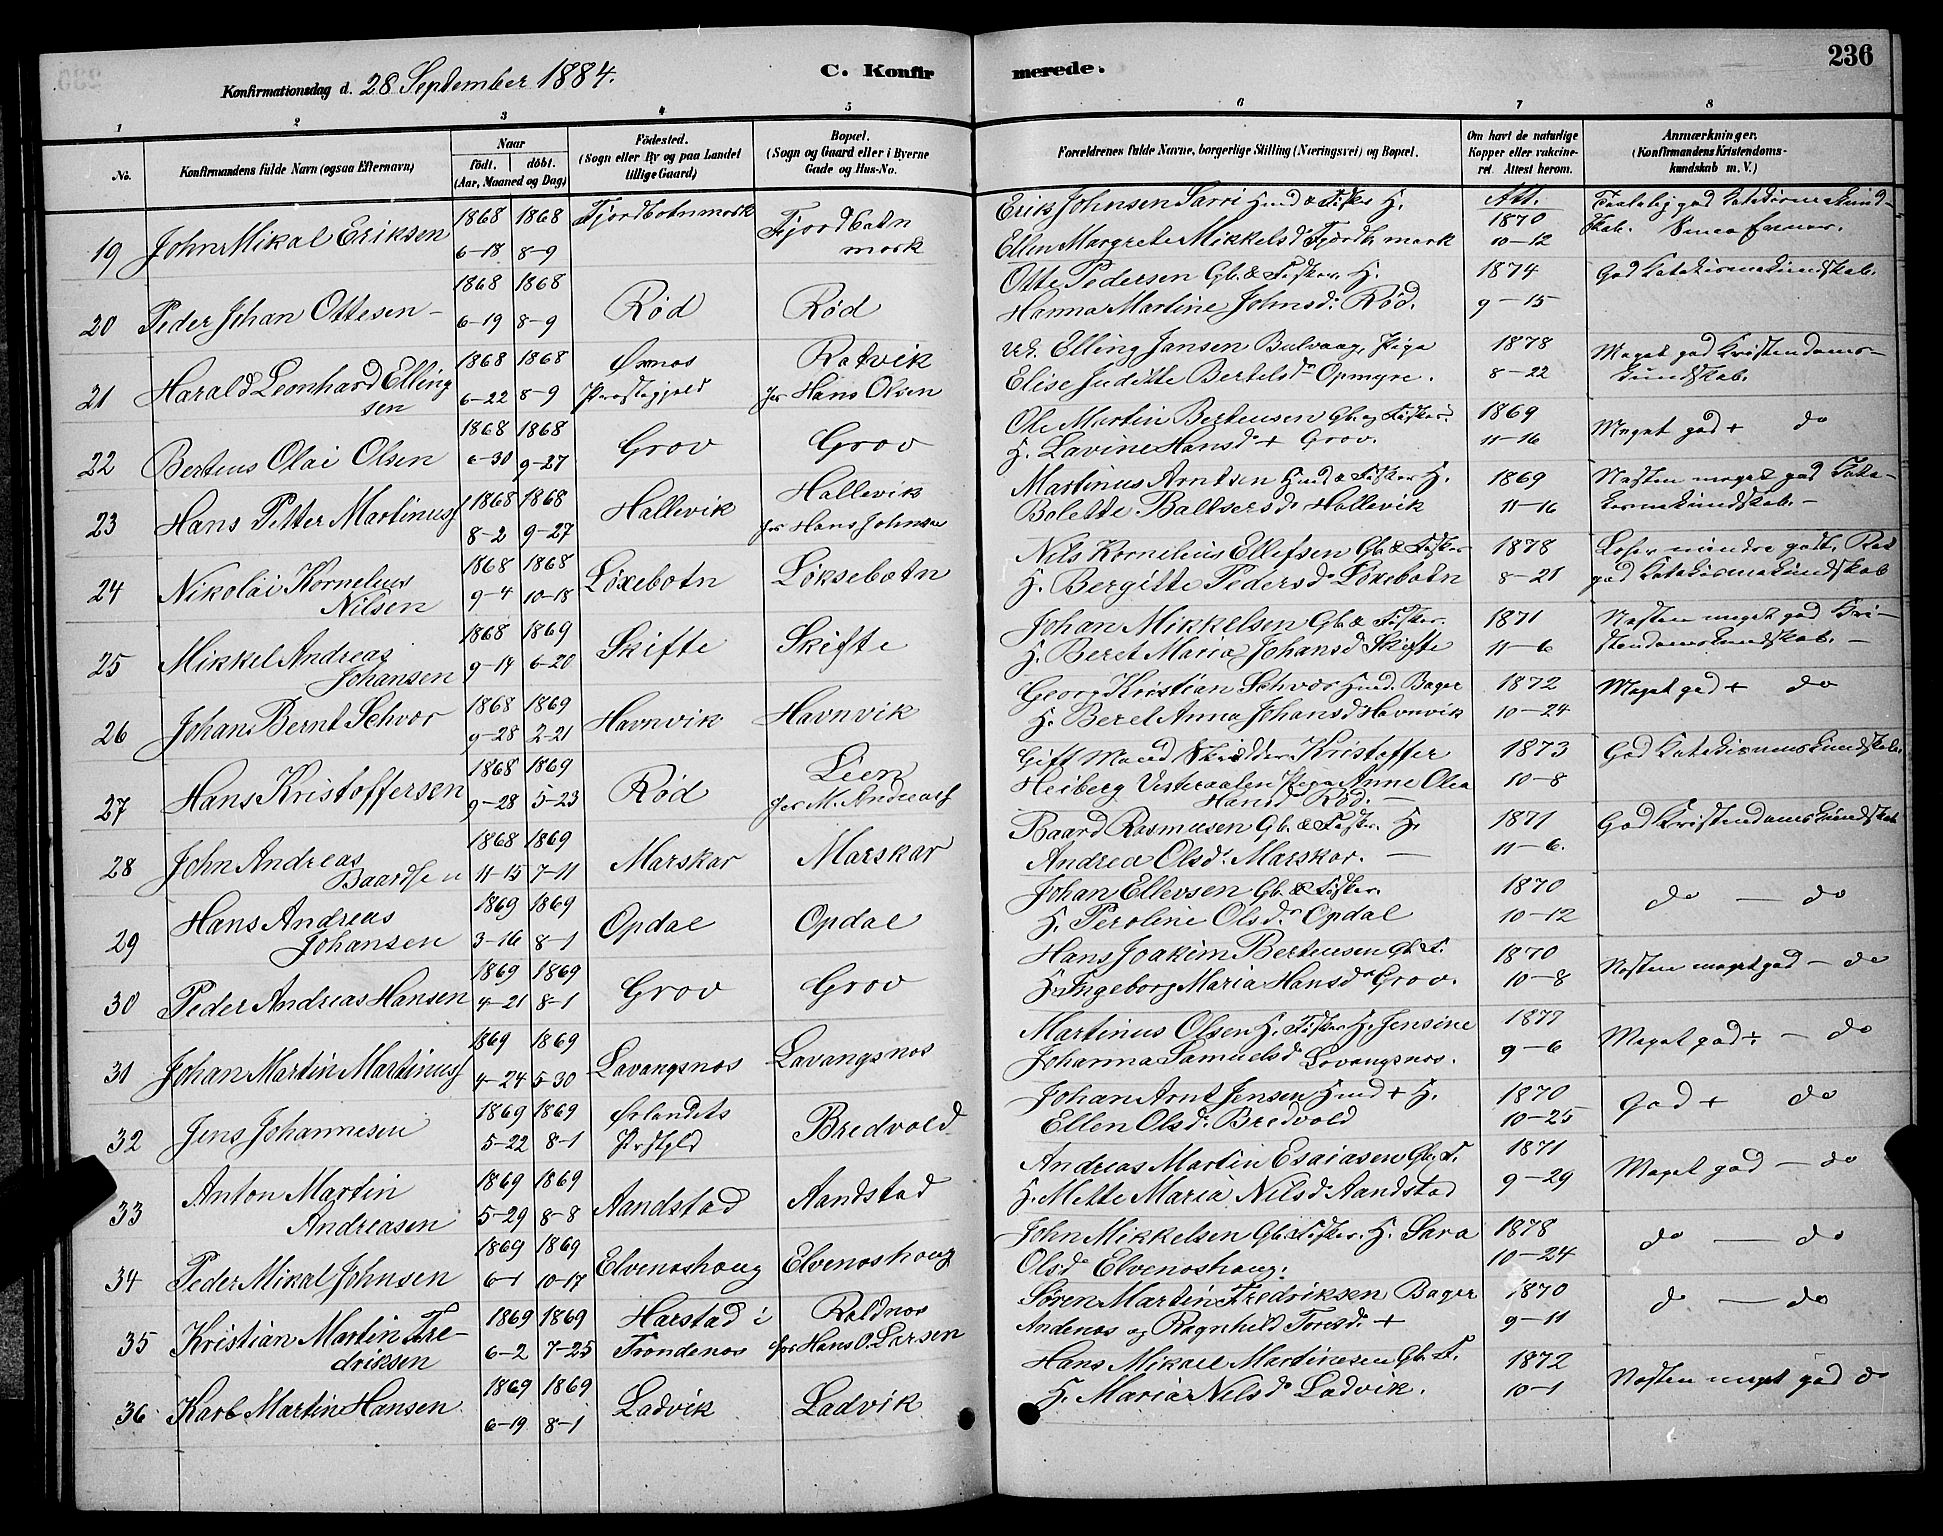 236
Konfirmationsdag d. 28 September 1884. C. Konfirmerede.
1 2 3 4 5 6 7 8
No. Konfirmandens fulde Navn (ogsaa Efternavn) Naar födt. döbt. (Aar, Maaned og Dag) Födested. (Sogn eller By og paa Landet tillige Gaard) Bopæl. (Sogn og Gaard eller i Byerne Gade og Hus-No. Forældrenes fulde Navne, borgerlige Stilling (Næringsvei) og Bopæl. Om havt de naturlige Kopper eller vakcineret. Attest herom. Anmærkninger. (Konfirmandens Kristendomskundskab m. V.)
19 John Mikal Eriksen 1868 6-18 1868 8-9 Fjordbotnmark Fjordbotn mark Erik Johnsen Sarri Huusd & Fisker H.
Ellen Margrete Mikkelsd. Fjordb. mark Att. 1870 10-12 god Katekismekundskab.
20 Peder Johan Ottesen 1868 6-19 1868 8-9 Rød Rød Otte Pedersen Gb. & Fisker. H.
Hanna Martine Johnsd. Rød. 1874 9-15 God Katekismekundskab.
21 Harald Leonhard Ellingsen 1868 6-22 1868 8-9 Øxnes Præstegjeld Rotvik hos Hans Olsen Elling Jansen Bulvaag, Pige
Elise Juditte Bertelsd. Opmyre. 1878 8-22 Meget god Kristendomskundskab.
22 Berteus Olai Olsen 1868 6-30 1868 9-27 Grov Grov Ole Martin Berteusen Gb. og Fisker.
H. Lavine Hansd. + Grov. 1869 11-16 Meget god + do
23 Hans Petter Martinus 1868 8-2 1868 9-27 Hallevik Hallevik hos Hans Johnsen Martinus Arntsen Huusd & Fisker H.
Bolette Baltsersd. Hallevik 1869 11-16 Næsten meget god Katekismekundskab.
24 Nikolai Kornelius Nilsen 1868 9-4 1868 10-18 Löxebotn Löksebotn Nils Kornelius Ellefsen Gb. & Fisker
H. Bergitte Pedersd. Löxebotn 1878 8-21 Læser mindre godt. god Katekismekundskab
25 Mikkel Andreas Johansen 1868 9-14 1869 6-20 Skifte Skifte Johan Mikkelsen Gb. & Fisker.
H. Beret Maria Johansd. Skifte 1871 11-6 Næsten meget god Kristendomskundskab.
26 Johan Bernt Schvor 1868 9-28 1869 2-21 Havnvik Havnvik Georg Kristian Schvor Huusd. Bager
H. Beret Anna Johansd. Havnvik 1872 10-24 Meget god + do
27 Hans Kristoffersen 1868 9-28 1869 5-23 Rød Lien hos M. Andreas Gift Mand Skrædder Kristoffer
Heiberg Vesteraalen Pige Anne Olea
Hansd. Rød. 1873 10-8 God Katekismekundskab.
28 John Andreas Baardsen 1868 11-15 1869 7-11 Marskar Marskar Baard Rasmusen Gb. & Fisker. H.
Andrea Olsd. Marskar. 1871 11-6. God Kristendomskundskab
29 Hans Andreas Johansen 1869 3-16 1869 8-1 Opdal Opdal Johan Ellevsen Gb. & Fisker.
H. Peroline Olsd. Opdal 1870 10-12 do — do
30 Peder Andreas Hansen 1869 4-21 1869 8-1 Grov Grov Hans Joakim Berteusen Gb. F.
H. Ingeborg Maria Hansd. Grov. 1870 10-8 Næsten meget god — do
31 Johan Martin Martinus 1869 4-24 1869 5-30 Lavangsnes Lavangsnes Martinus Olsen H. Fisker H. Jensine
Johanna Samuelsd. Lavangsnes. 1877 9-6 Meget god + — do
32 Jens Johannesen 1869 5-22 1869 8-1 Ørlandets Prstgld Bredvold Johan Arnt Jensen Huusd + H.
Ellen Olsd. Bredvold 1870 10-25 God + do
33 Anton Martin Andreasen 1869 5-29 1869 8-8 Aandstad Aandstad Andreas Martin Esaiasen Gb. F.
H. Mette Maria Nilsd. Aandstad 1871 9-29 Meget god — do
34 Peder Mikal Johnsen 1869 6-1 1869 10-17 Elveneshaug Elveneshaug John Mikkelsen Gb. & Fisker. H. Sara
Olsd. Elveneshaug. 1878 10-24 do — do
35 Kristian Martin Fredriksen 1869 6-2 1869 7-25 Harstad i Trondenes Roldnes hos Hans O. Larsen Søren Martin Fredriksen Bager
Andenes og Ragnhild Toresd. + 1870 9-11 do — do
36 Karl Martin Hansen 1869 6-19 1869 8-1 Ladvik Ladvik Hans Mikael Martinesen Gb. F.
H. Maria Nilsd. Ladvik. 1872 10-1 Næsten meget god do